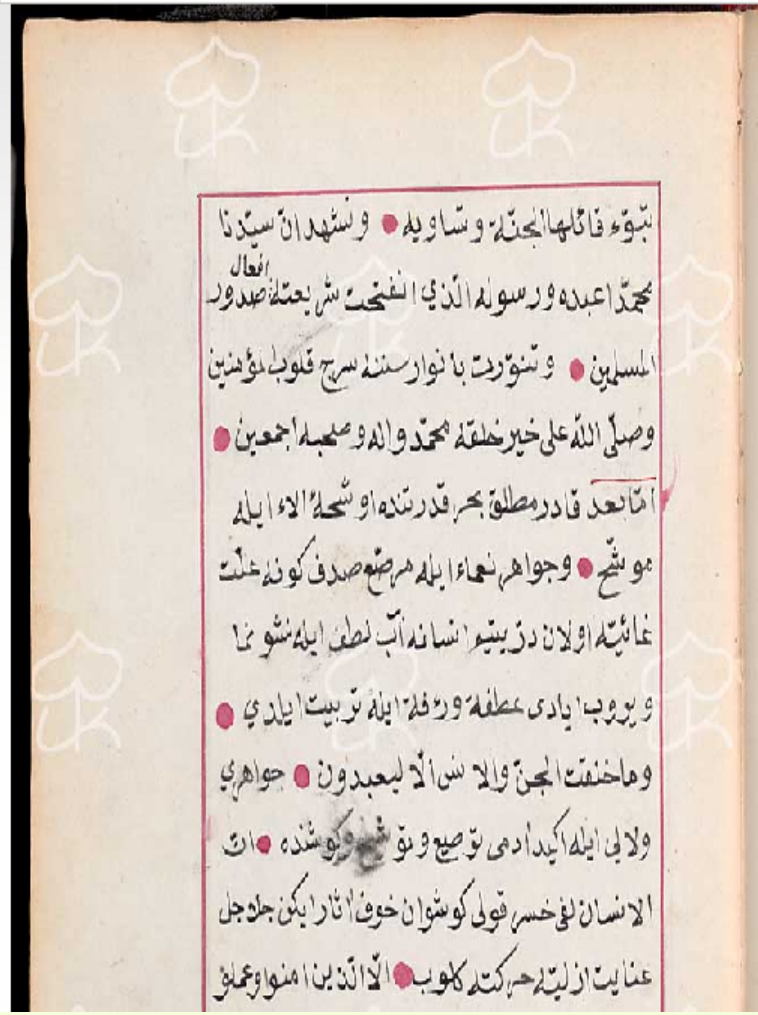 تبوّء قائلها الجنّة وتساويه ● ونشهد انّ سيّدنا
افعال
محمّدا عبده ورسوله الّذي انفتحت شريعته صدور
المسلمين ● وتنوّرت بانوار سننه سرج قلوب المؤمنين
وصلّى اللّه على خير خلقه محمّد واله وصحبه اجمعين ●
امّا بعد قادر مطلق بحر قدرتنده اوشحهٔ الاء ايله
موشّح ● وجواهر نعماء ايله مرصّع صدف كونه علّت
غائيّه اولان درّ يتيم انسانه آب لطف ايله نشو نما
ويروب ايادى عطفة ورأفة ايله تربيت ايلدي ●
وما خلقت الجنّ والانس الّا ليعبدون ● جواهري
ولالى ايله اكيد ادمى توصيع و كوشنده ● انّ
الانسان لفى خسر قولى كوشوان خوف اثار ايكن جلاجل
عنايت ازليّه حركته كلوب ● الّا الّذين امنوا وعملو